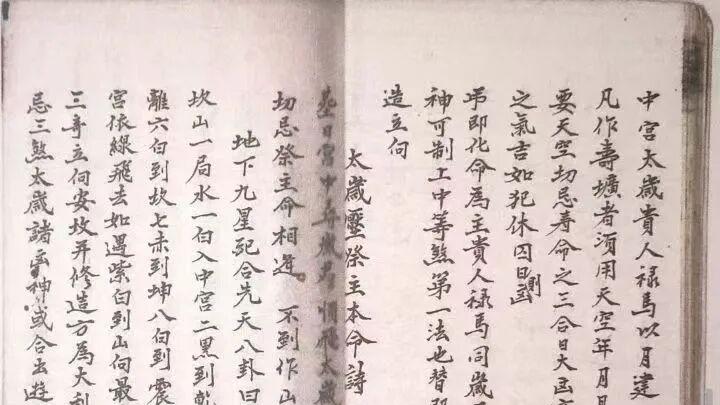 中宮太歲貴人祿馬以月建
凡作壽壙者須用天空年月日
要天空切忌壽命之三合日大凶
之氣吉如犯休囚日則凶
吊即化命為主貴人祿馬同歲
神可制上中等煞第一法也替
造立向
太歲壓祭主本命詩
日宮中太歲
切忌祭主命相逢 不到作山
地下九星 合先天八卦曰
坎山一局水一白入中宮二黑到乾
離六白到坎七赤到坤八白到震
宮依線飛去如遇紫白到山向最
三奇立向安坟并修造方為大利
忌三煞太歲諸凶神或合出遊